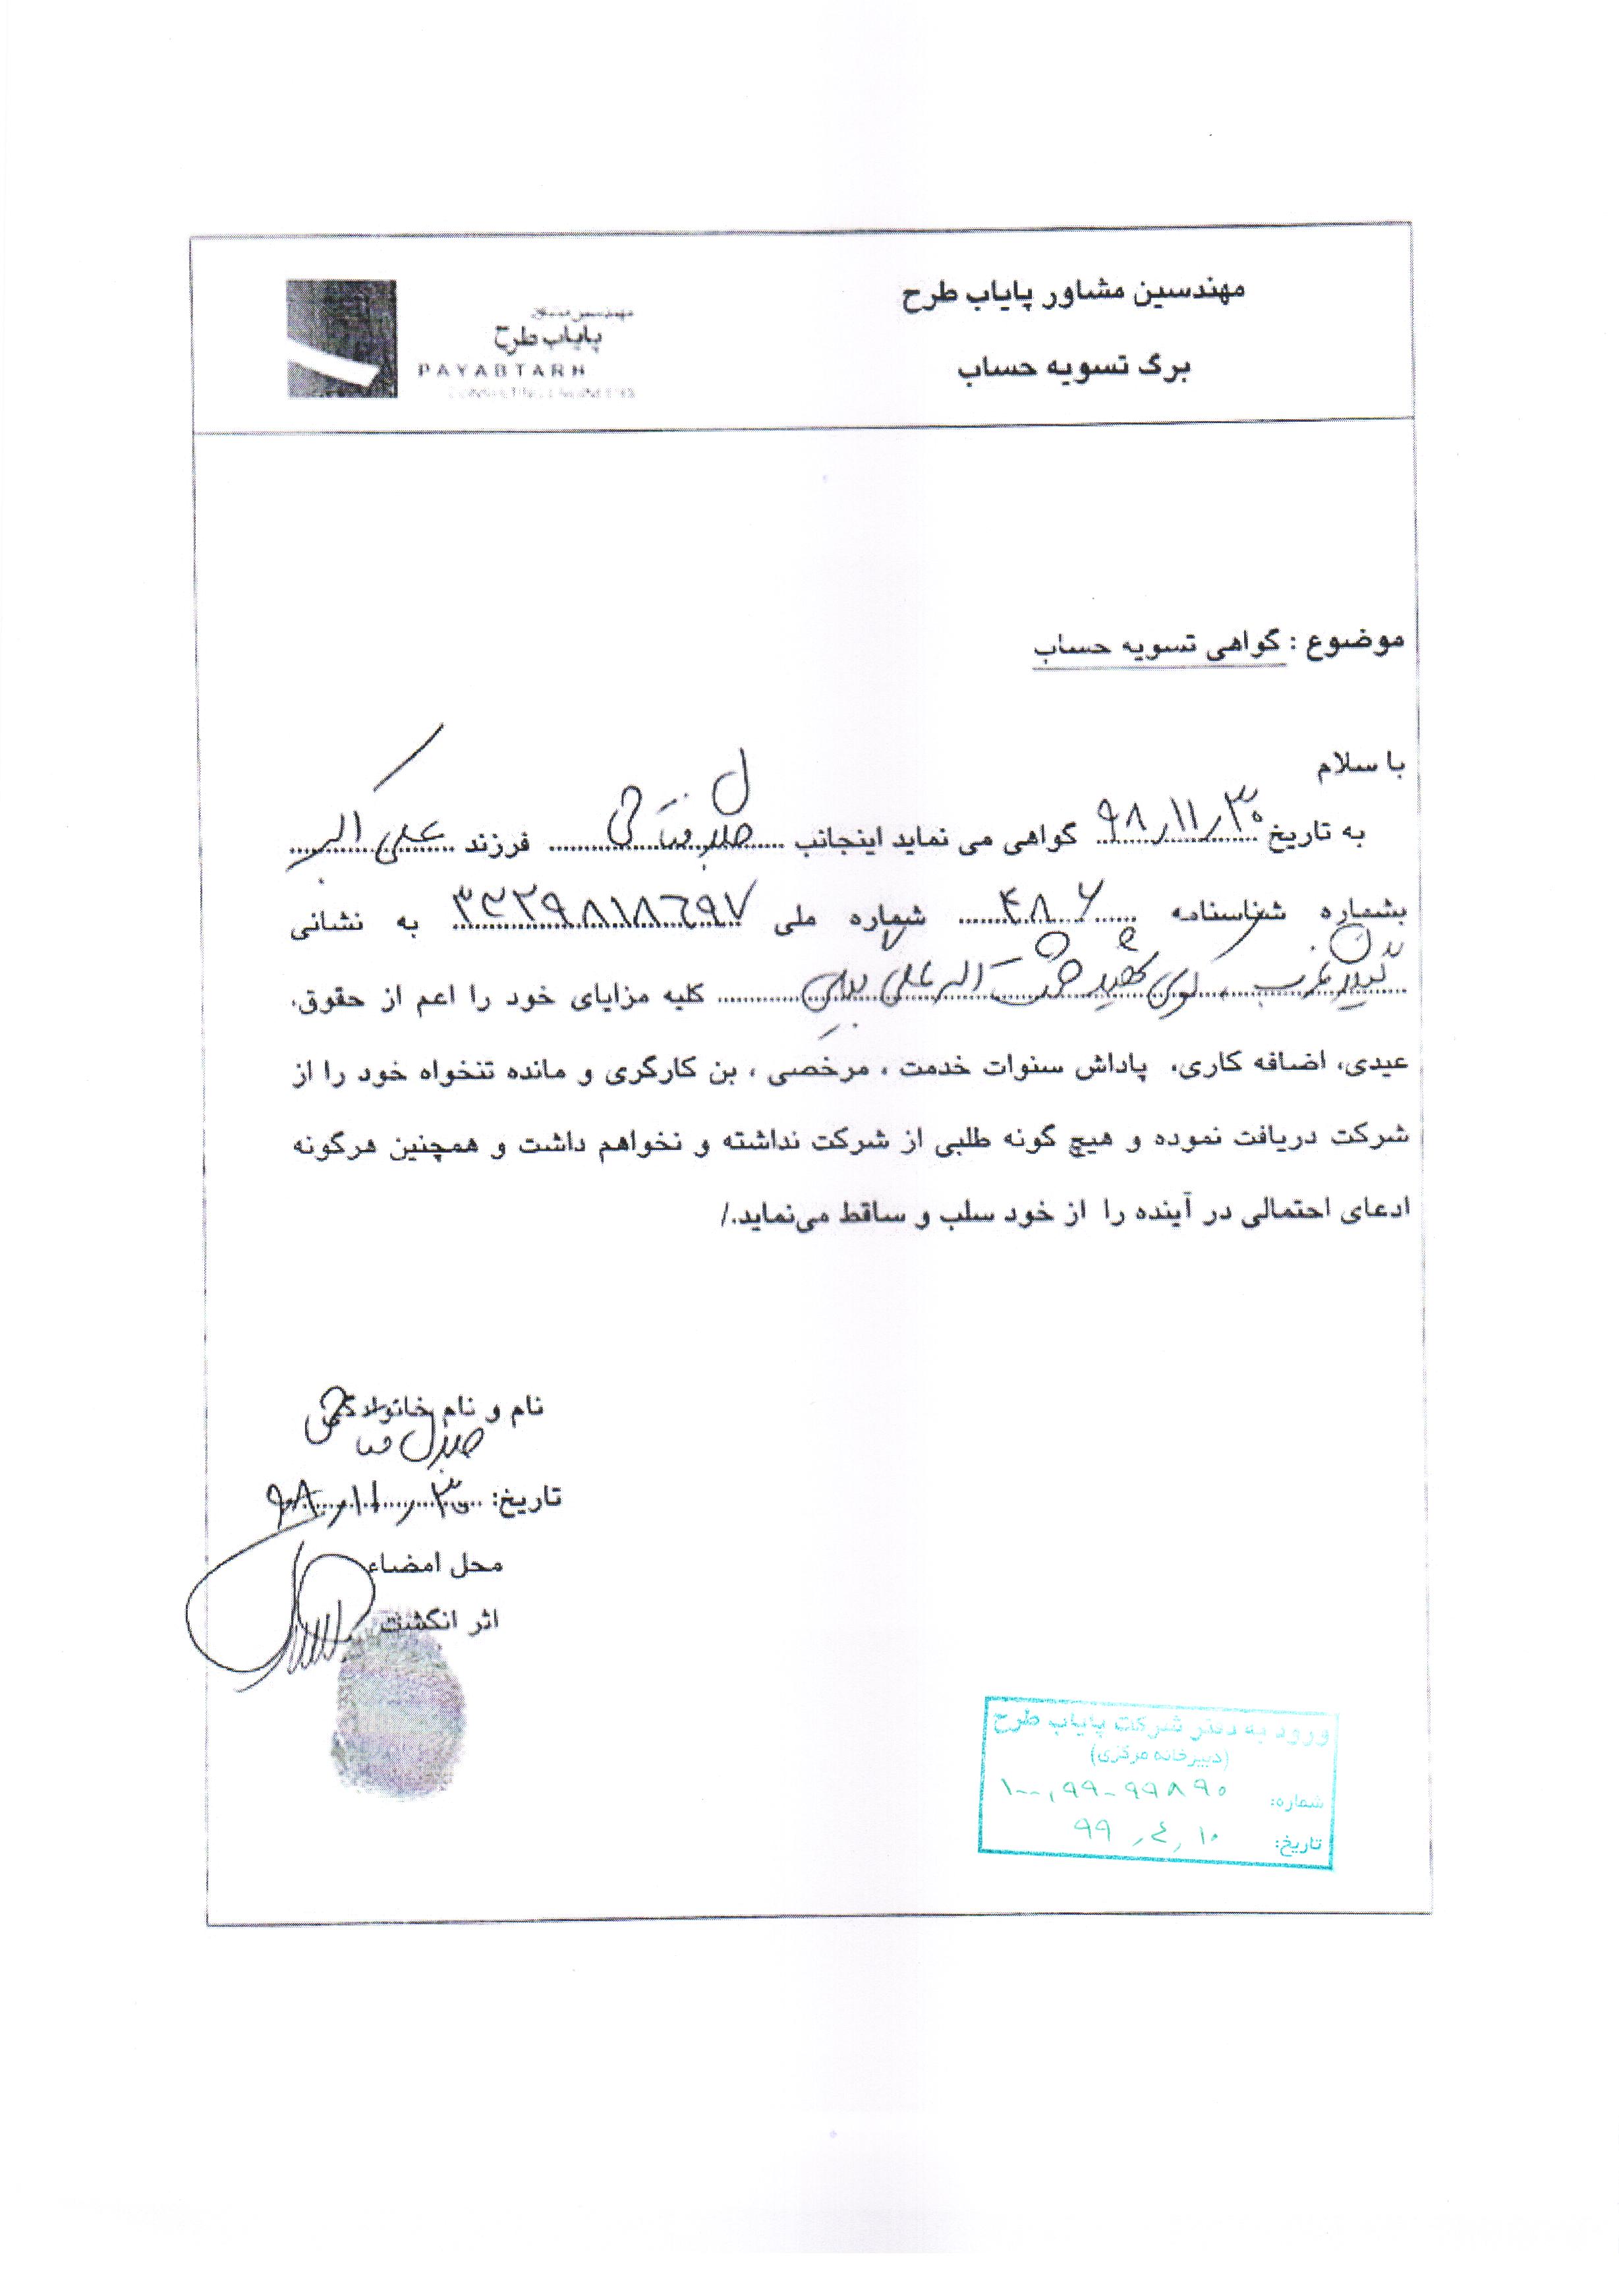 مهندسین مشاور پایاب طرح
برگ تسویه حساب
مهندسین مشاور
پایاب طرح
PAYABTARH
CONSULTING ENGINEERS
موضوع : گواهی تسویه حساب
با سلام
به تاریخ ۹۸,۱۱,۳۰ گواهی می نماید اینجانب فرزند علی اکبر
بشماره شناسنامه ۴۸۶ شماره ملی به نشانی
کوی شهید علی کلیه مزایای خود را اعم از حقوق،
عیدی، اضافه کاری، پاداش سنوات خدمت ، مرخصی ، بن کارگری و مانده تنخواه خود را از
شرکت دریافت نموده و هیچ گونه طلبی از شرکت نداشته و نخواهم داشت و همچنین هرگونه
ادعای احتمالی در آینده را از خود سلب و ساقط می‌نماید./
نام و نام خانوادگی
تاریخ: ۹۸,۱۱,۳۰
محل امضاء
اثر انگشت
ورود به دفتر شرکت پایاب طرح
(دبیرخانه مرکزی)
شماره: ۱۰۰,۹۹-۹۹۸۹۰
تاریخ: ۹۹,٤,۱۰